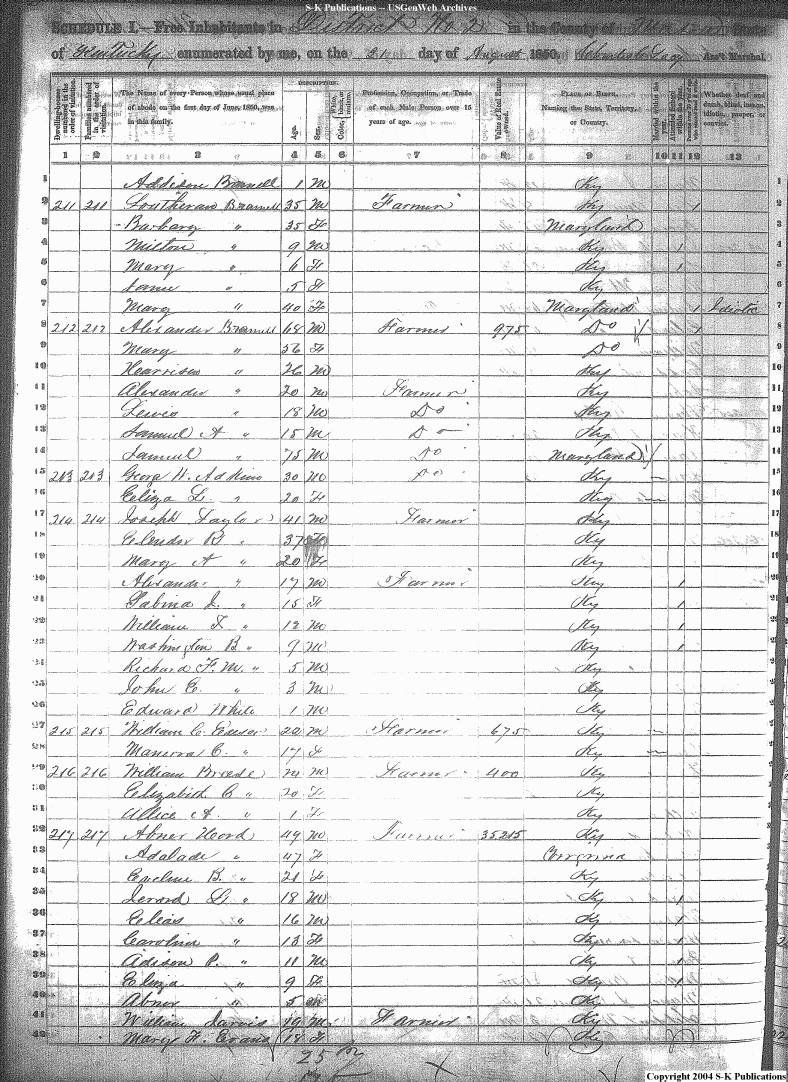 S-K Publications -- USGenWeb Archives
SCHEDULE I.—Free Inhabitants in District No 2 in the County of State
of Kentucky enumerated by me, on the 21 day of August 1850. Ass't Marshal.
Dwelling-houses numbered in the order of visitation.
Families numbered in the order of visitation.
The Name of every Person whose usual place of abode on the first day of June, 1850, was in this family.
DESCRIPTION.
Age.
Sex.
Color,
Profession, Occupation, or Trade of each Male Person over 15 years of age.
Value of Real Estate owned.
PLACE OF BIRTH. Naming the State, Territory, or Country.
Married within the year.
Attended School within the year.
Whether deaf and dumb, blind, insane, idiotic, pauper, or convict.
1 2 3 4 5 6 7 8 9 10 11 12 13
1 Addison Bramell 1 M Ky 1
2 211 211 Bramell 35 M Farmer Ky 1 2
3 Barbary " 35 F Maryland 3
4 Milton " 9 M Ky 1 4
5 Mary " 6 F Ky 1 5
6 " 5 F Ky 6
7 Mary " 40 F Maryland 1 Idiotic 7
8 212 212 Alexander Bramell 68 M Farmer 975 Do 1 8
9 Mary " 56 F Do 9
10 Harrison " 26 M Ky 10
11 Alexander " 20 M Farmer Ky 11
12 Lewis " 18 M Do Ky 12
13 Samuel A " 15 M Do Ky 13
14 Samuel " 75 M Do Maryland 14
15 213 213 Georg H. Adkins 30 M Do Ky 15
16 Eliza L. " 20 F Ky 16
17 214 214 Joseph Taylor 41 M Farmer Ky 17
18 Elender R " 37 F Ky 18
19 Mary A " 20 F Ky 19
20 Alexander " 17 M Farmer Ky 1
21 Sabina J. " 15 F Ky 1
22 William T. " 12 M Ky 1
23 Washington B " 9 M Ky 1
24 Richard F. M. " 5 M Ky
25 John C. " 3 M Ky
26 Edward White 1 M Ky
27 215 215 William C. 22 M Farmer 675 Ky
28 Manerva C. " 17 F Ky
29 216 216 William M Farmer 400 Ky
30 Elizabeth C " 20 F Ky
31 Allice A. " 1 F Ky
32 217 217 Abner Hord 49 M Farmer 35215 Ky
33 Adalade " 47 F
34 Eveline B. " 21 F Ky
35 " 18 M Ky 1
36 Elias " 16 M Ky 1
37 Carolin " 13 F Ky 1
38 Adison P. " 11 M Ky 1
39 Eliza " 9 F Ky 1
40 Abner " 5 M Ky
41 William Jarvis 19 M Farmer Ky
42 Mary F. Evans 18 F Ky
25
Copyright 2004 S-K Publications